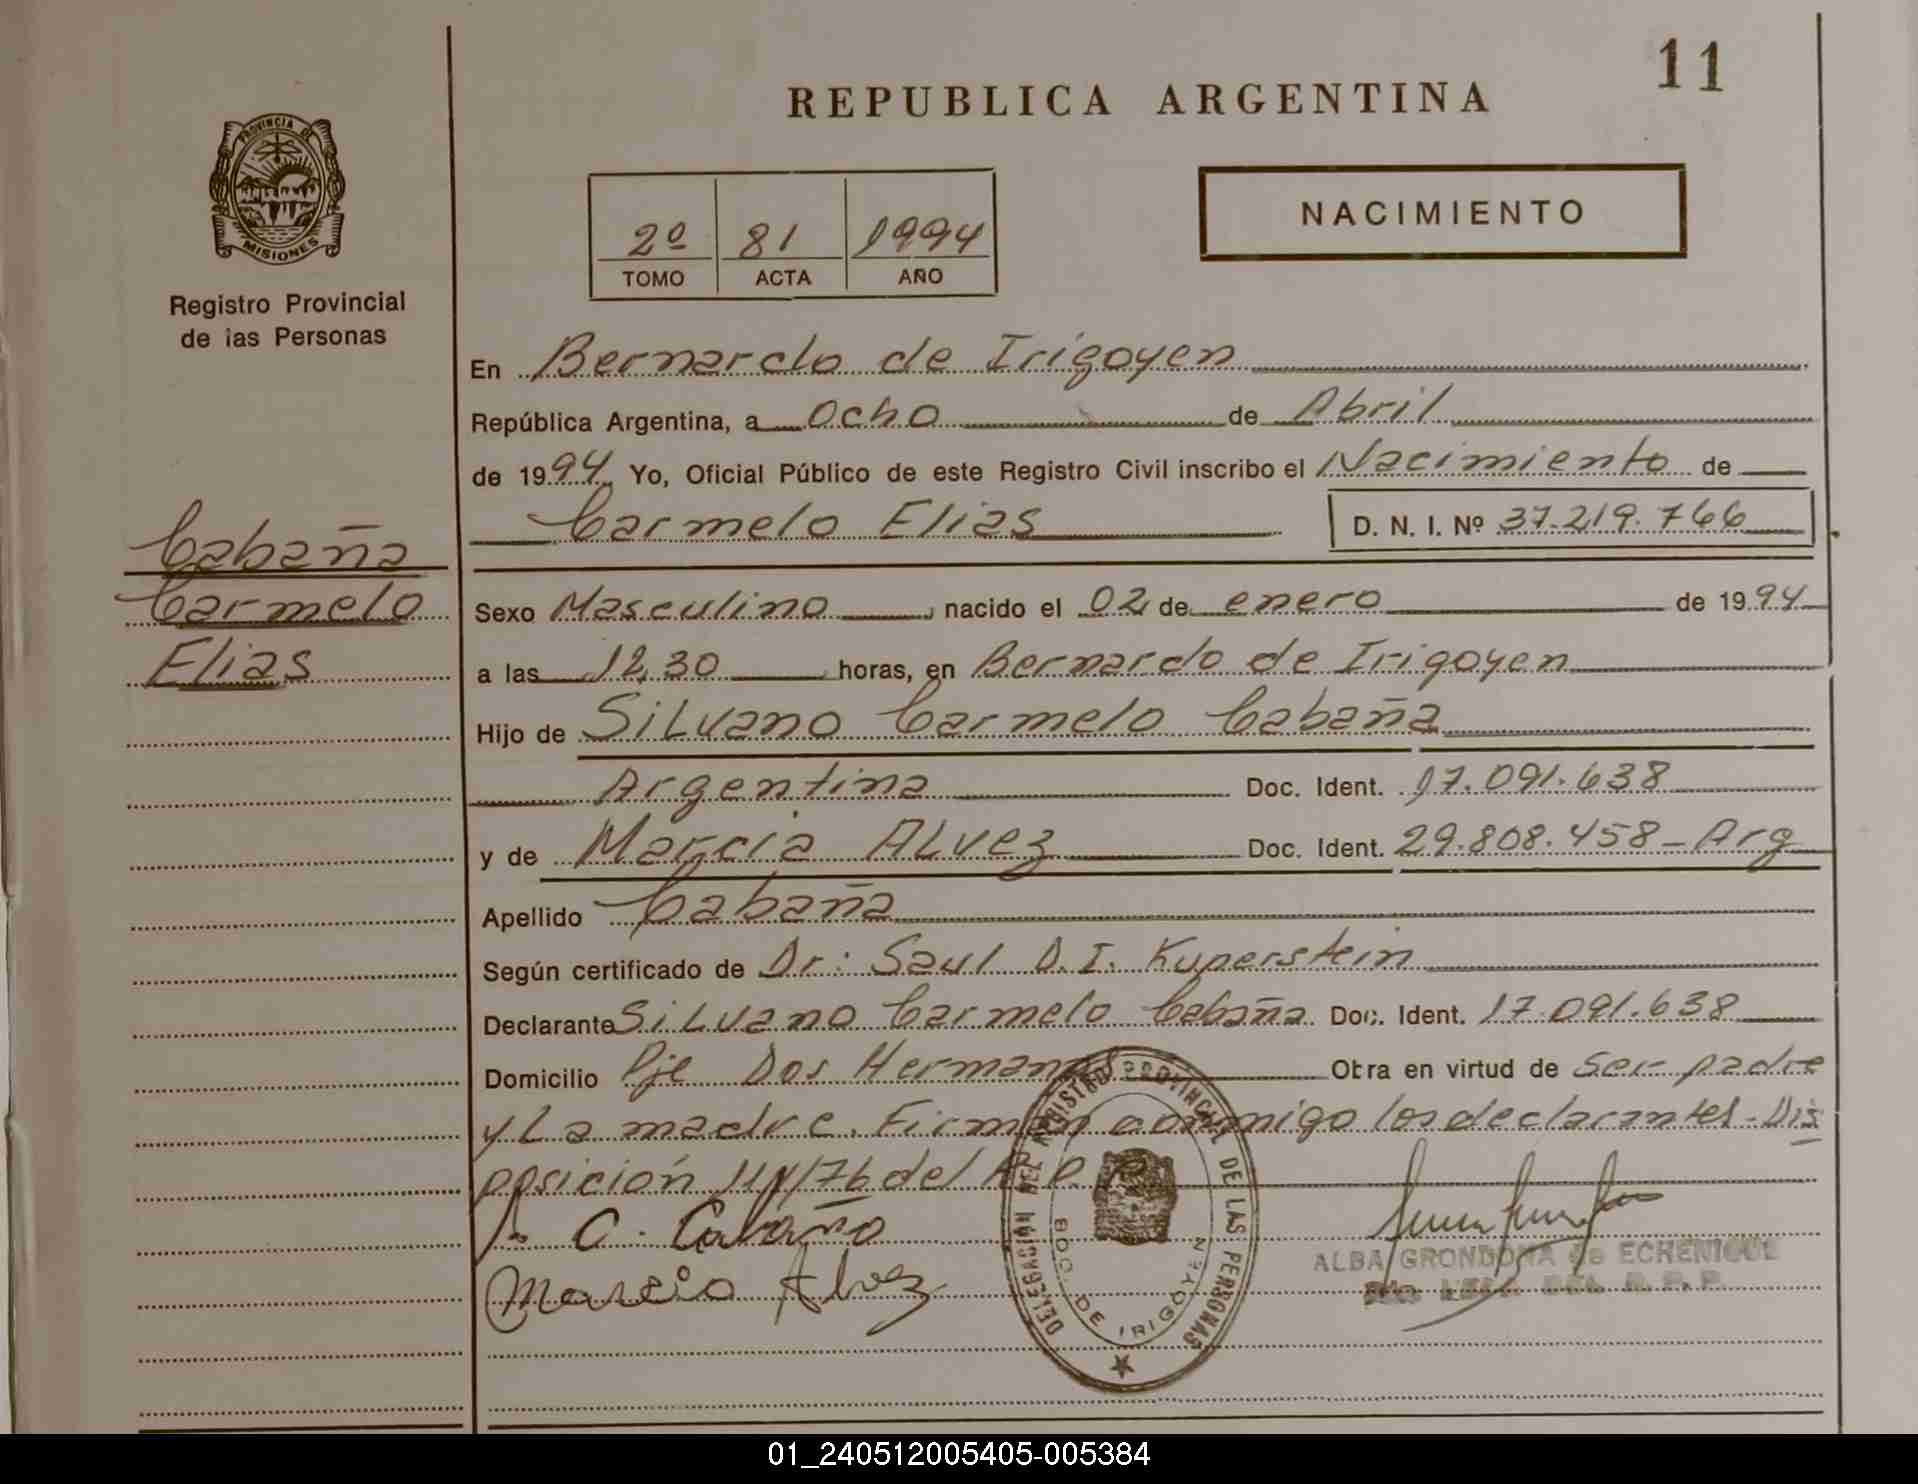 11
REPUBLICA ARGENTINA
PROVINCIA DE
MISIONES
Registro Provincial
de las Personas
2º 81 1994
TOMO ACTA AÑO
NACIMIENTO
En Bernardo de Irigoyen
República Argentina, a Ocho de Abril
de 1994 Yo, Oficial Público de este Registro Civil inscribo el Nacimiento de
Carmelo Elias D. N. I. Nº 37.219.766
Cabaña
Carmelo
Elias
Sexo Masculino, nacido el 02 de enero de 1994
a las 12,30 horas, en Bernardo de Irigoyen
Hijo de Silvano Carmelo Cabaña
Argentina Doc. Ident. 17.091.638
y de Marcia Alvez Doc. Ident. 29.808.458 - Arg
Apellido Cabaña
Según certificado de Dr: Saul D. I. Kuperstein
Declarante Silvano Carmelo Cabaña Doc. Ident. 17.091.638
Domicilio Pje Dos Hermanas Obra en virtud de Ser padre
y La madre. Firman conmigo los declarantes - Dis
posición 114/76 del R. P.
C. Cabaña
Marcia Alvez
DELEGACIÓN DEL REGISTRO PROVINCIAL DE LAS PERSONAS
BDO. DE IRIGOYEN
ALBA GRONDONA de ECHENIQUE
DEL R. P. P.
01_240512005405-005384